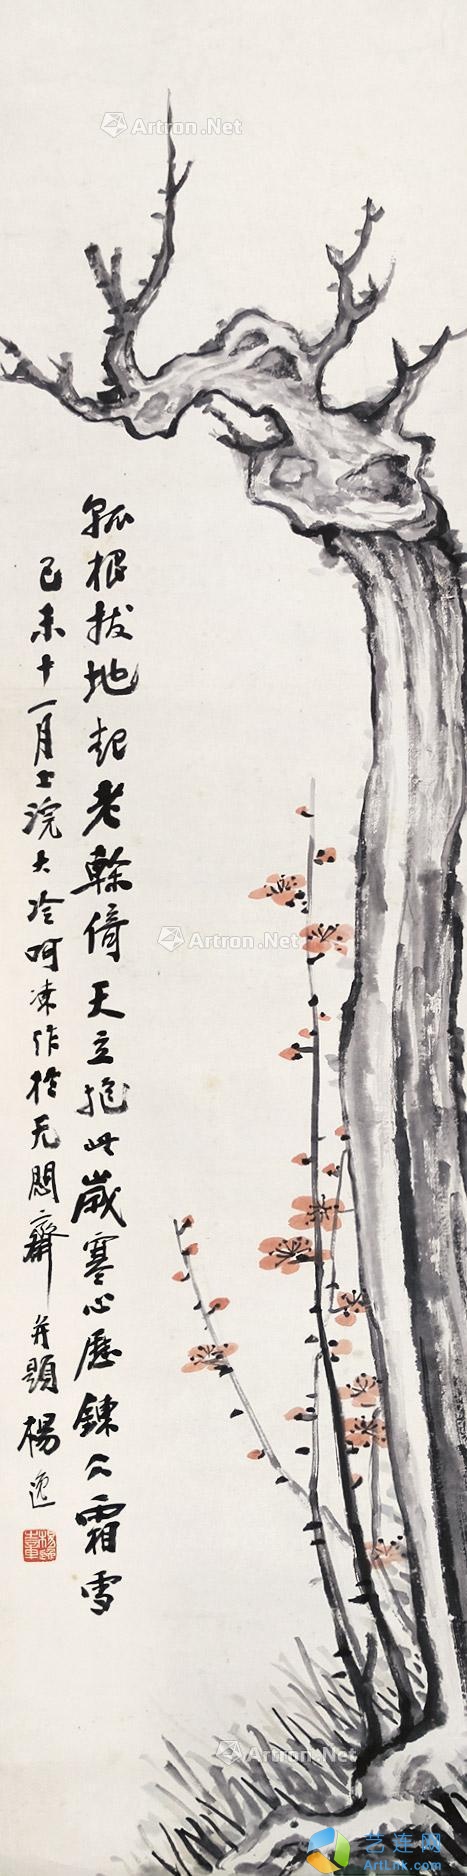 Artron.Net
孤根拔地起老榦倚天立抱此歲寒心歷鍊久霜雪
己未十一月上浣大冷呵凍作於无悶齋并題楊逸
Artron.Net
Artron.Net
艺连网
ArtLnk.com